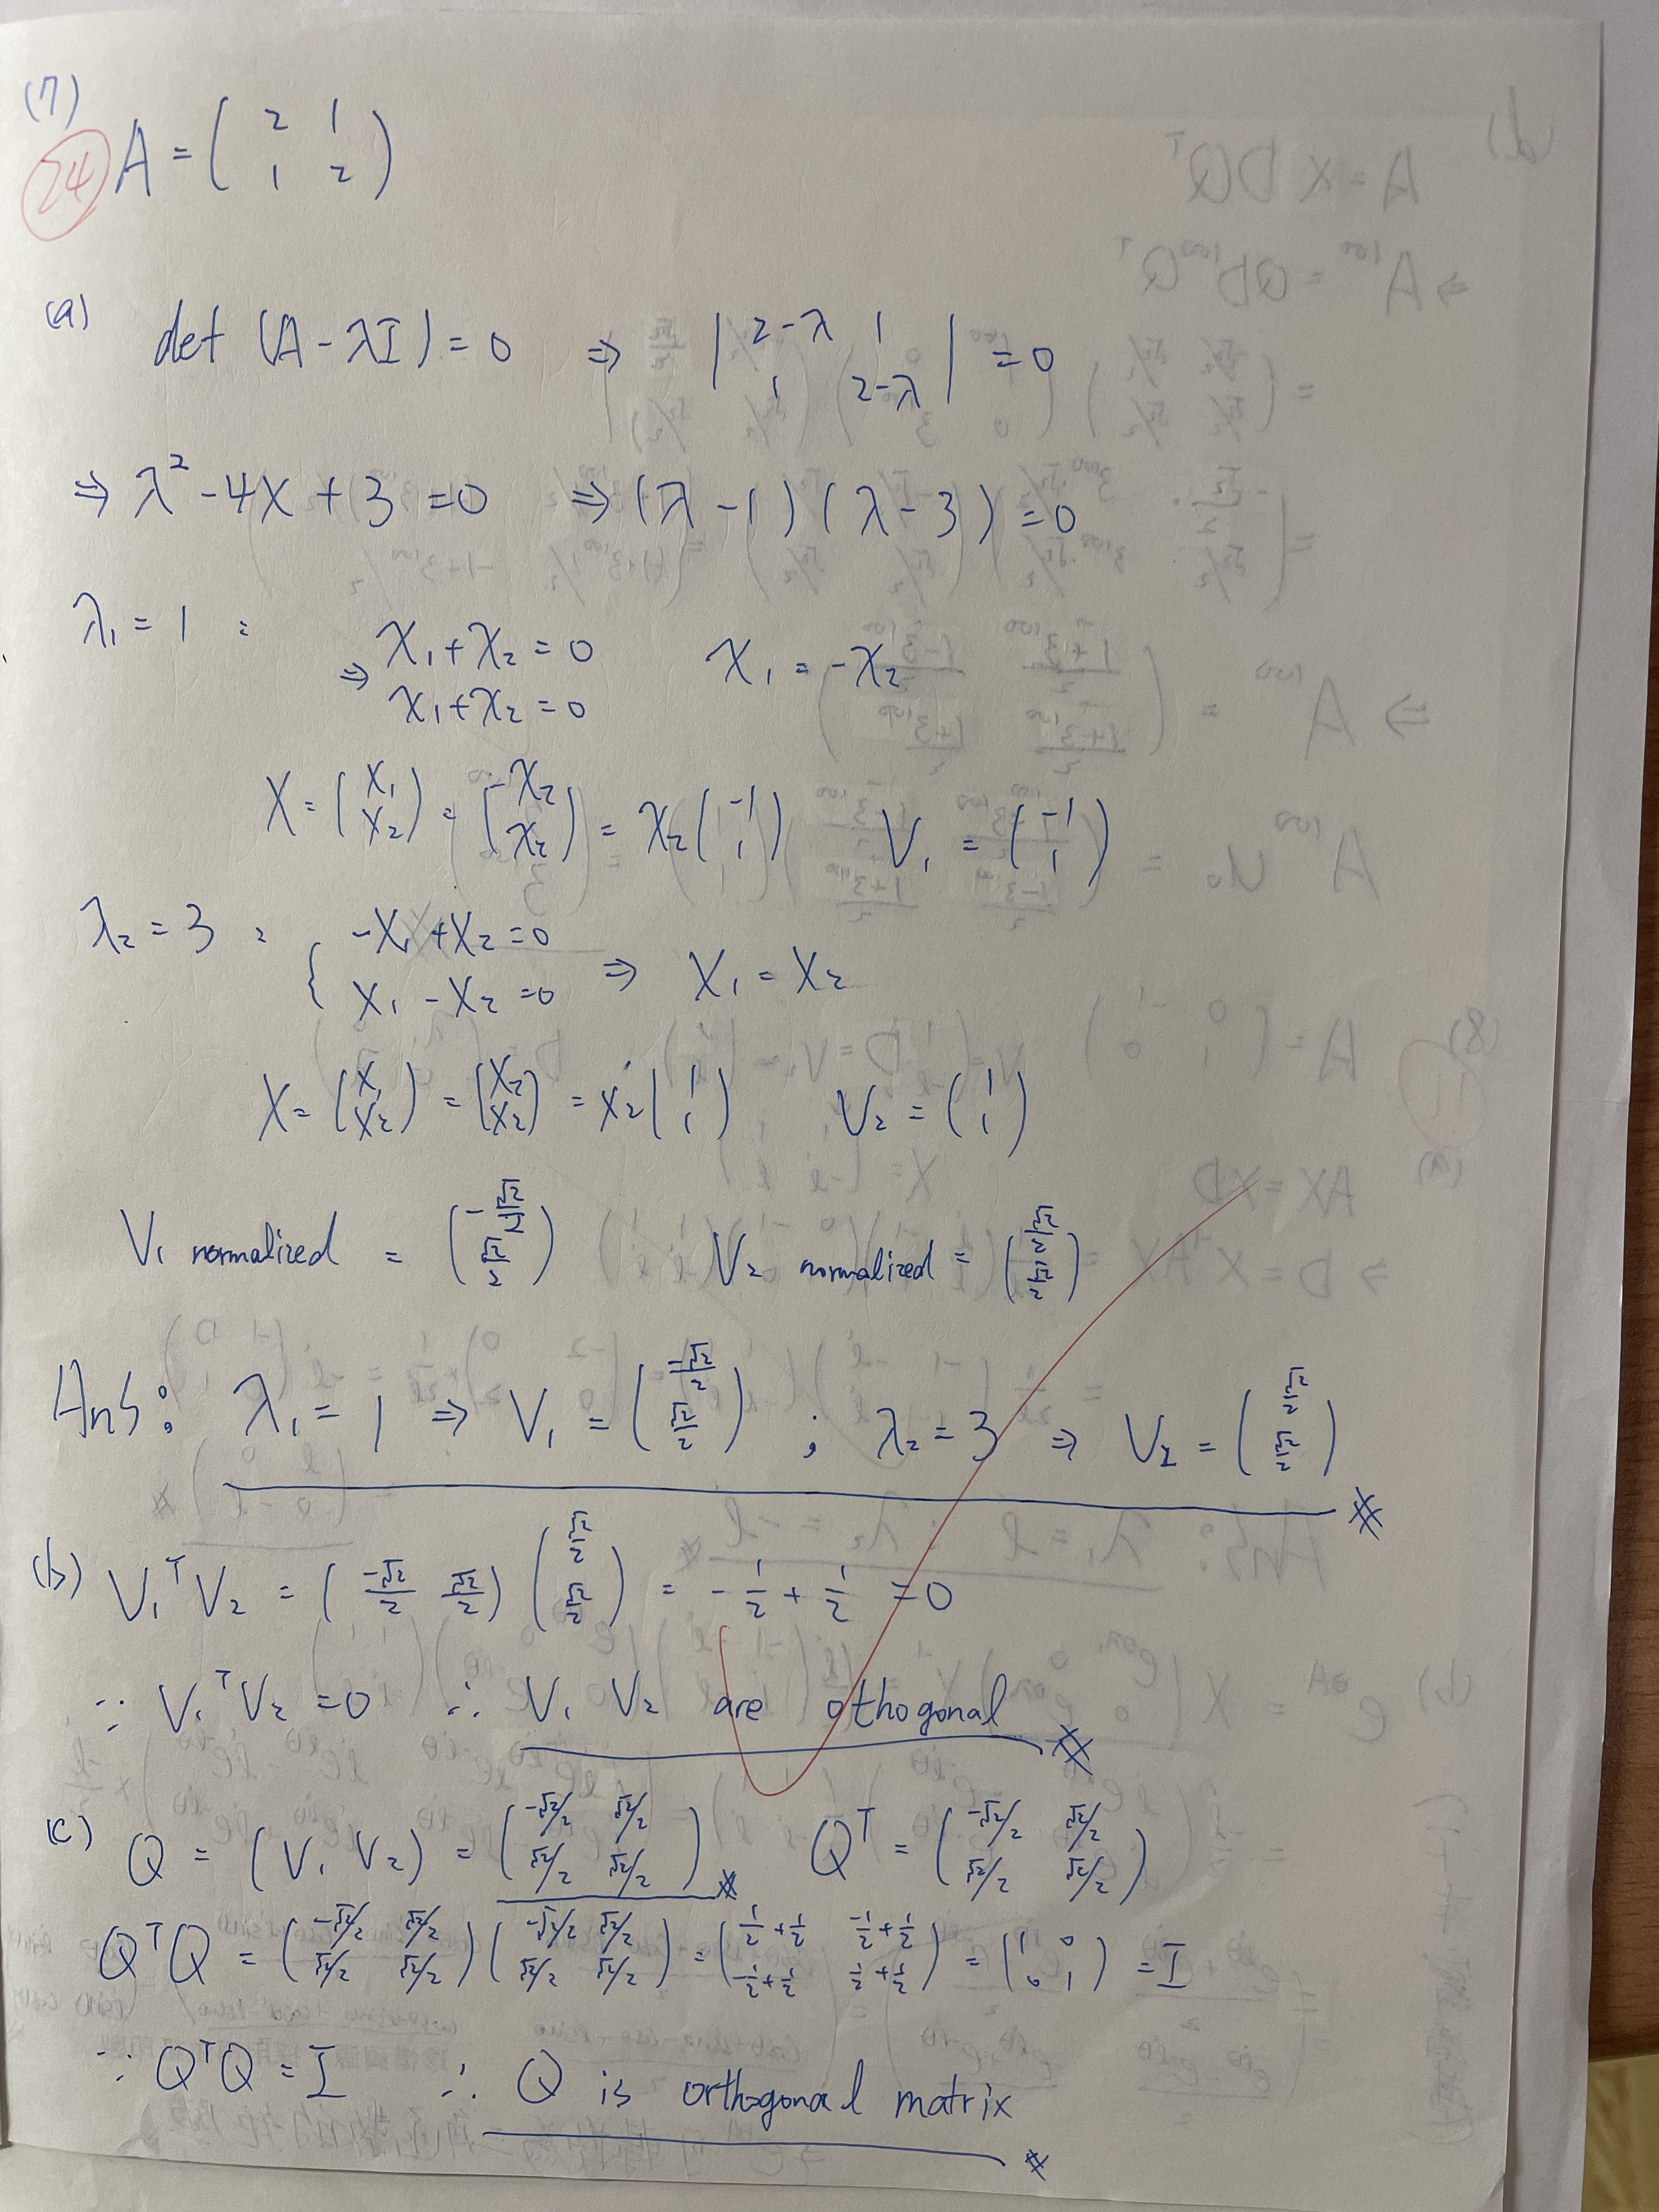 (7)
24
A = ( 2 1 / 1 2 )
(a) det (A - λI) = 0 ⇒ | 2-λ 1 / 1 2-λ | = 0
⇒ λ² - 4x + 3 = 0 ⇒ (λ - 1) (λ - 3) = 0
λ₁ = 1 : ⇒ x₁ + x₂ = 0 x₁ = -x₂
x₁ + x₂ = 0
X = ( x₁ / x₂ ) = ( -x₂ / x₂ ) = x₂ ( -1 / 1 ) V₁ = ( -1 / 1 )
λ₂ = 3 : { -x₁ + x₂ = 0
x₁ - x₂ = 0 ⇒ x₁ = x₂
X = ( x₁ / x₂ ) = ( x₂ / x₂ ) = x₂ ( 1 / 1 ) V₂ = ( 1 / 1 )
V₁ normalized = ( -√2/2 / √2/2 ) V₂ normalized = ( √2/2 / √2/2 )
Ans: λ₁ = 1 ⇒ V₁ = ( -√2/2 / √2/2 ) ; λ₂ = 3 ⇒ V₂ = ( √2/2 / √2/2 )
(b) V₁ᵀ V₂ = ( -√2/2 √2/2 ) ( √2/2 / √2/2 ) = -1/2 + 1/2 = 0
∵ V₁ᵀ V₂ = 0 ∴ V₁ V₂ are orthogonal
(c) Q = (V₁ V₂) = ( -√2/2 √2/2 / √2/2 √2/2 ) Qᵀ = ( -√2/2 √2/2 / √2/2 √2/2 )
QᵀQ = ( -√2/2 √2/2 / √2/2 √2/2 ) ( -√2/2 √2/2 / √2/2 √2/2 ) = ( 1/2 + 1/2 -1/2 + 1/2 / -1/2 + 1/2 1/2 + 1/2 ) = ( 1 0 / 0 1 ) = I
∵ QᵀQ = I ∴ Q is orthogonal matrix